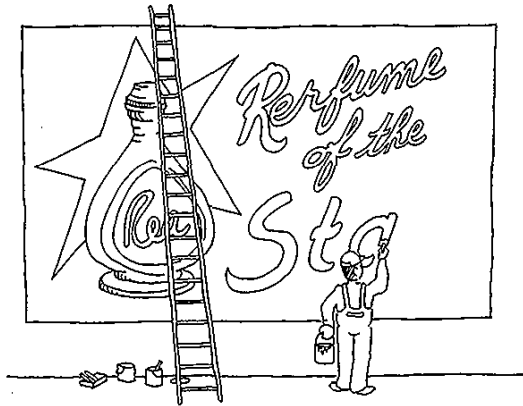 Rerfume
of the
Sta